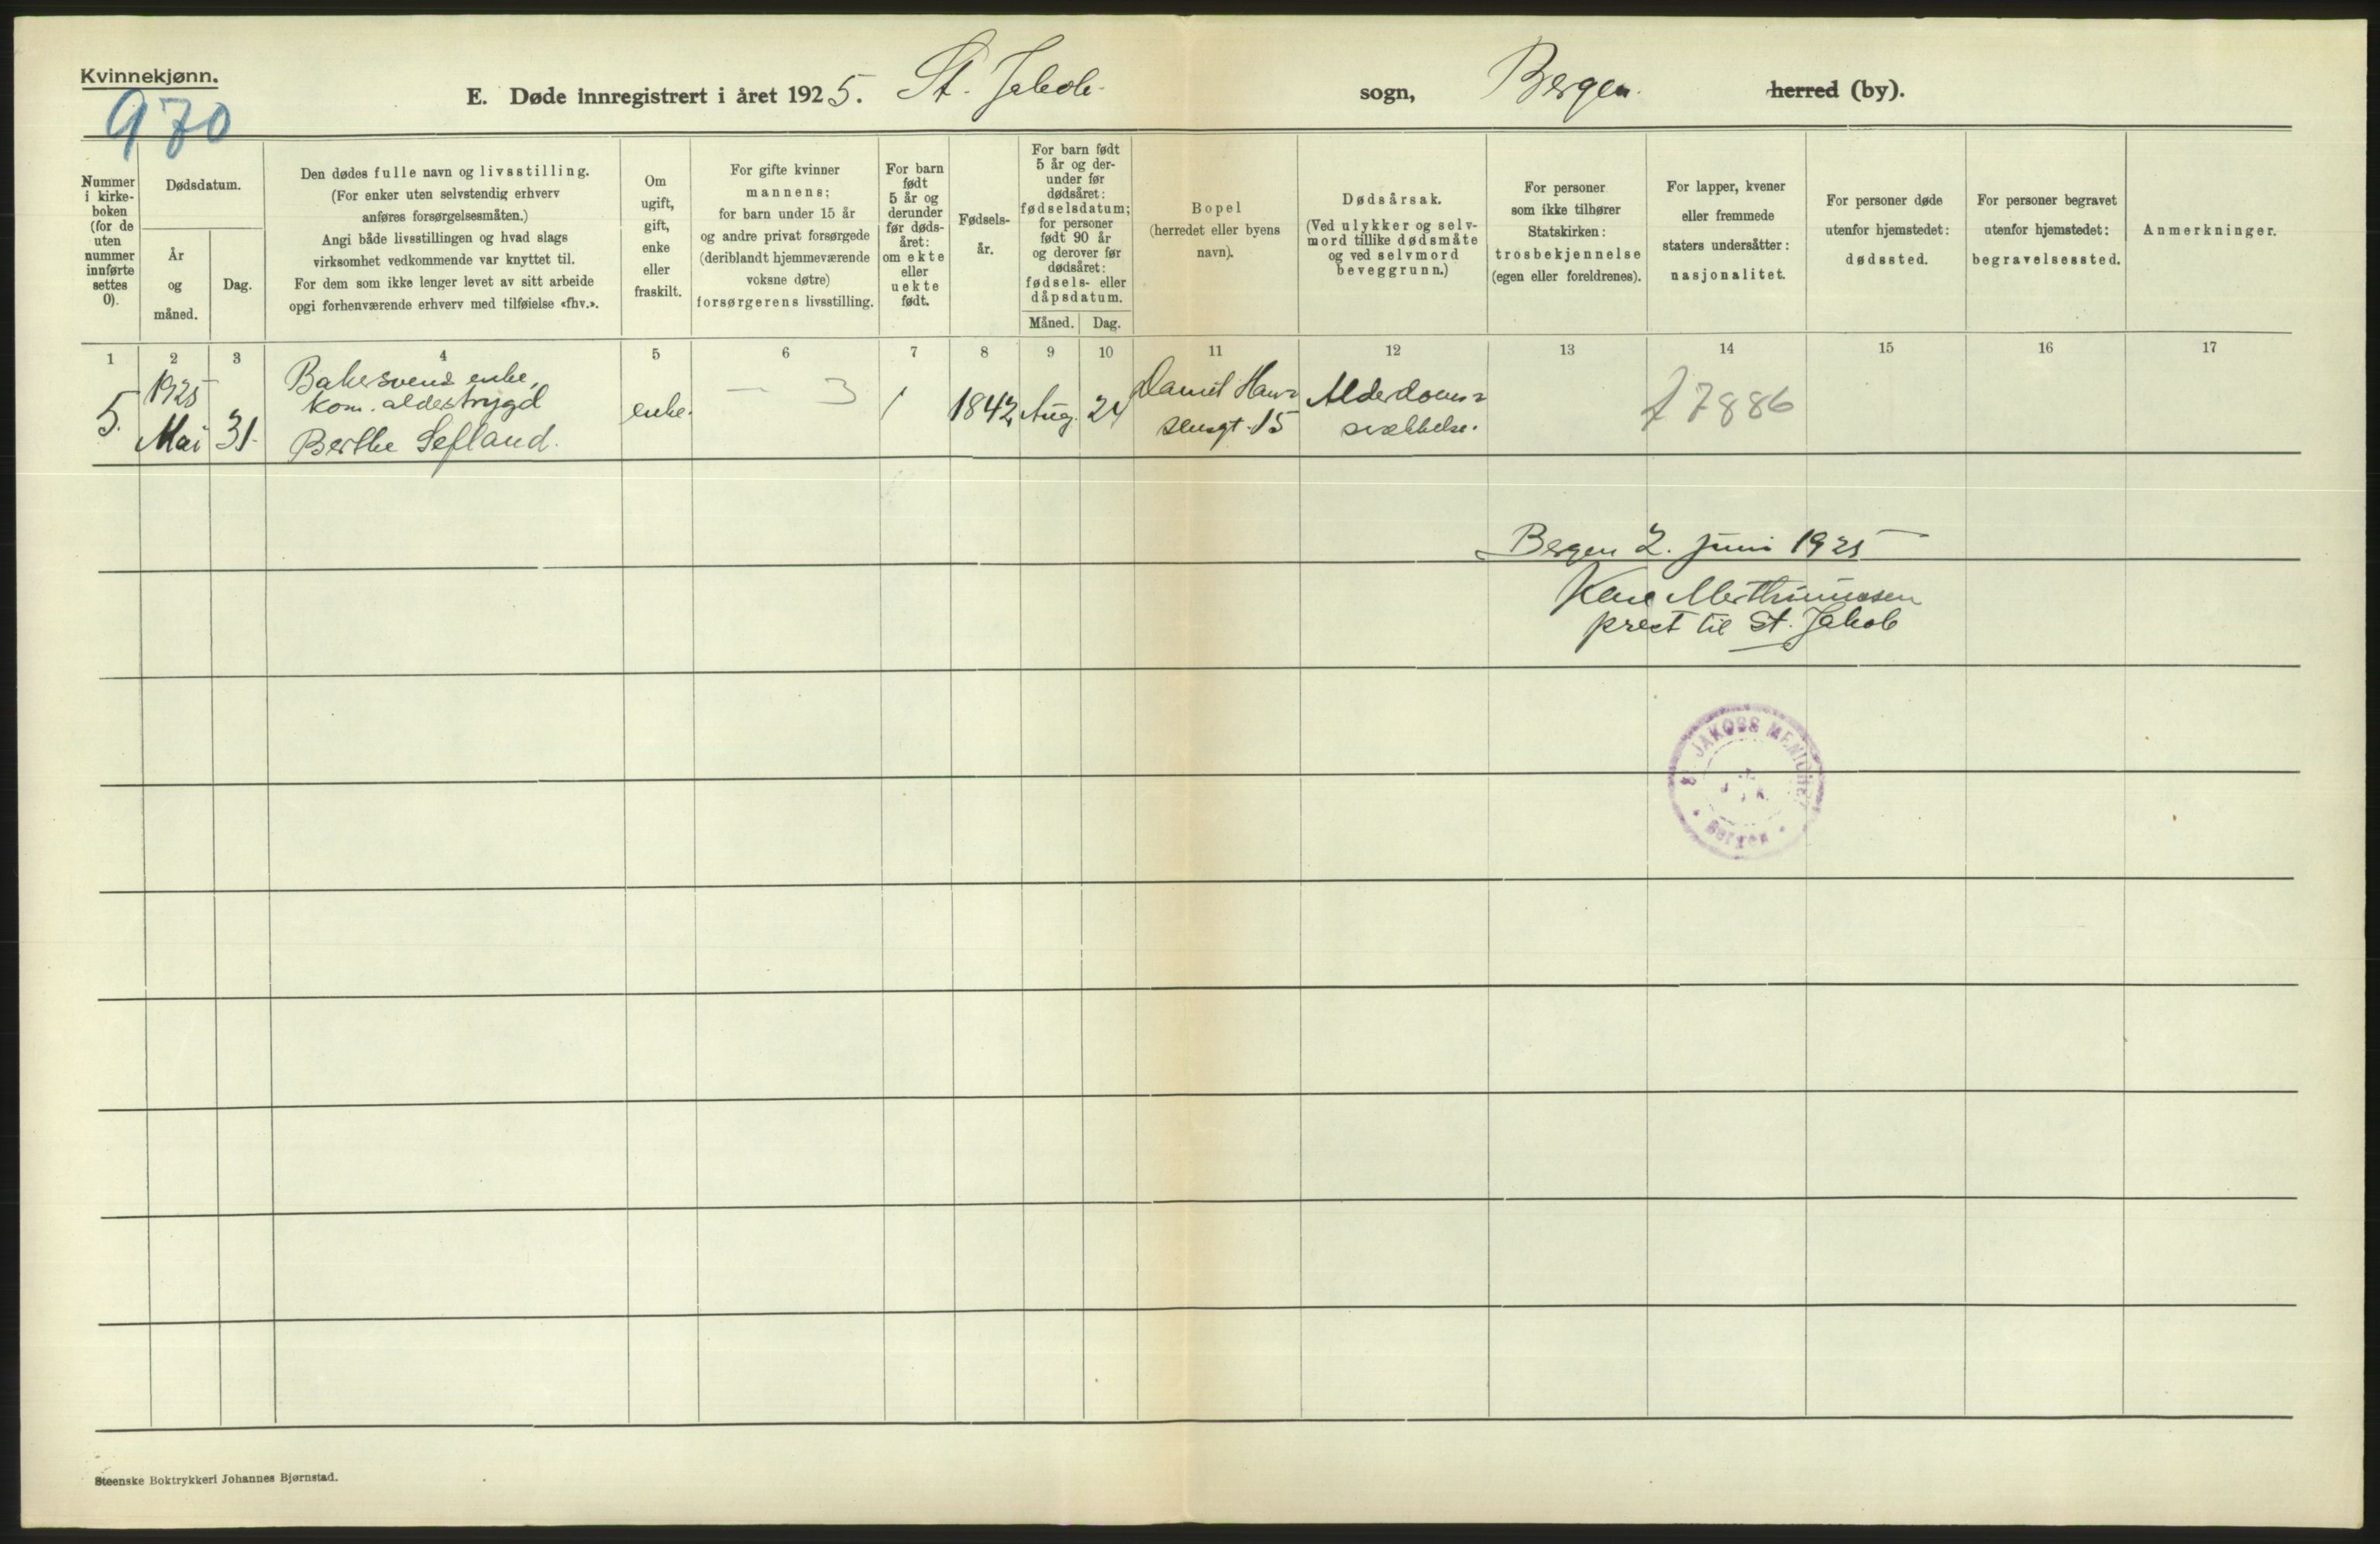 Kvinnekjønn.
970
E. Døde innregistrert i året 1925. St. Jakob sogn, Bergen. herred (by).
Nummer i kirke-boken (for de uten nummer innførte settes 0).
Dødsdatum.
År og måned.
Dag.
Den dødes fulle navn og livsstilling.
(For enker uten selvstendig erhverv
anføres forsørgelsesmåten.)
Angi både livsstillingen og hvad slags
virksomhet vedkommende var knyttet til.
For dem som ikke lenger levet av sitt arbeide
opgi forhenværende erhverv med tilføielse «fhv.».
Om
ugift,
gift,
enke
eller
fraskilt.
For gifte kvinner
mannens;
for barn under 15 år
og andre privat forsørgede
(deriblandt hjemmeværende
voksne døtre)
forsørgerens livsstilling.
For barn
født
5 år og
derunder
før døds-
året:
om ekte
eller
uekte
født.
Fødsels-
år.
For barn født
5 år og der-
under før
dødsåret:
fødselsdatum;
for personer
født 90 år
og derover før
dødsåret:
fødsels- eller
dåpsdatum.
Måned. Dag.
Bopel
(herredet eller byens
navn).
Dødsårsak.
(Ved ulykker og selv-
mord tillike dødsmåte
og ved selvmord
beveggrunn.)
For personer
som ikke tilhører
Statskirken:
trosbekjennelse
(egen eller foreldrenes).
For lapper, kvener
eller fremmede
staters undersåtter:
nasjonalitet.
For personer døde
utenfor hjemstedet:
dødssted.
For personer begravet
utenfor hjemstedet:
begravelsessted.
Anmerkninger.
1 2 3 4 5 6 7 8 9 10 11 12 13 14 15 16 17
5. 1925 Mai 31.
Bakersvends enke,
kom. alderstrygd
Berthe Sefland.
enke. — 3 / 1842 Aug. 24
Daniel Han-
sensgt. 15
Alderdoms-
svækkelse.
17886
Bergen 2. juni 1925
prest til St. Jakob
St. JAKOBS MENIGHET
Bergen
Steenske Boktrykkeri Johannes Bjørnstad.